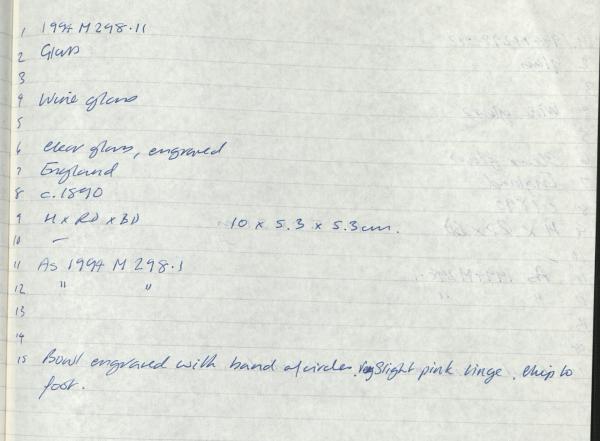 1 1997 M 298.11
2 Glass
3
4 Wine glass
5
6 clear glass, engraved
7 England
8 c.1890
9 H x RD x BD 10 x 5.3 x 5.3cm.
10 —
11 As 1997 M 298.1
12 " "
13
14
15 Bowl engraved with band of circles. Very Slight pink tinge. Chip to
foot.